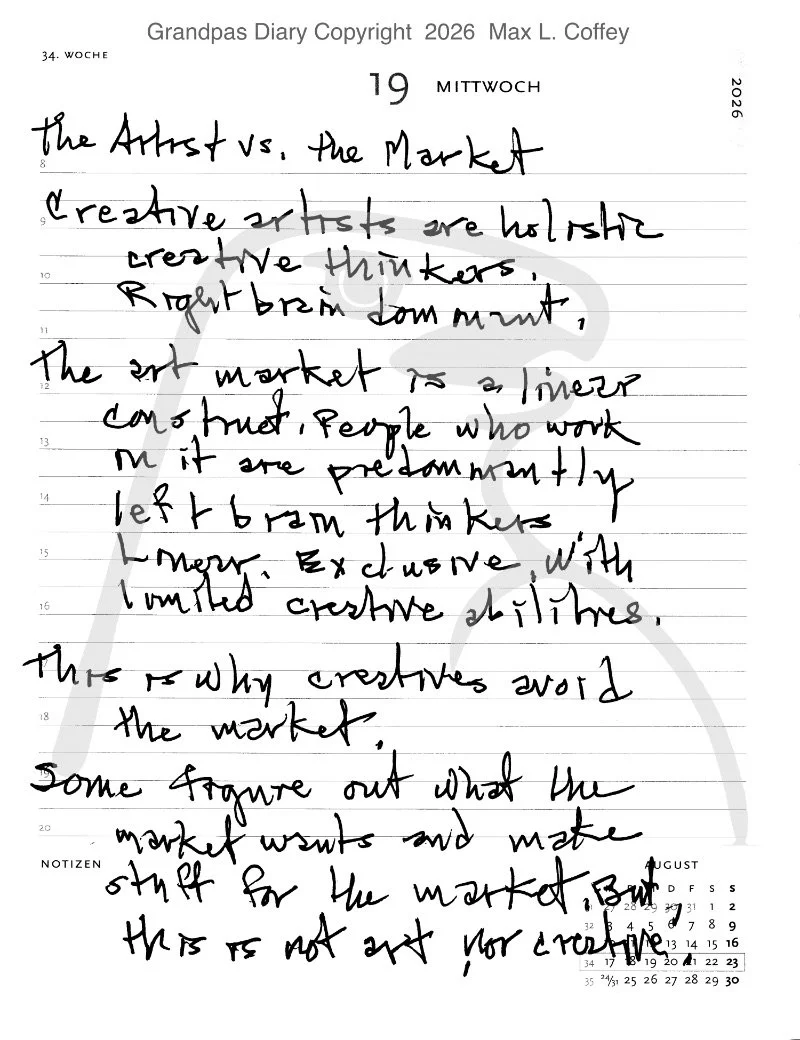 Grandpas Diary Copyright 2026 Max L. Coffey
34. WOCHE
19 MITTWOCH
2026
The Artist vs. the Market
8
Creative artists are holistic
9
creative thinkers.
10
Right brain dominant.
11
The art market is a linear
12
construct. People who work
13
in it are predominantly
14
left brain thinkers
15
Linear. Exclusive. With
limited creative abilities.
16
This is why creatives avoid
18
the market.
Some figure out what the
19
market wants and make
20
NOTIZEN
AUGUST
stuff for the market. But,
this is not art nor creative.
D F S S
27 28 29 30 31 1 2
32 3 4 5 6 7 8 9
13 14 15 16
34 17 18 19 20 21 22 23
35 24/31 25 26 27 28 29 30